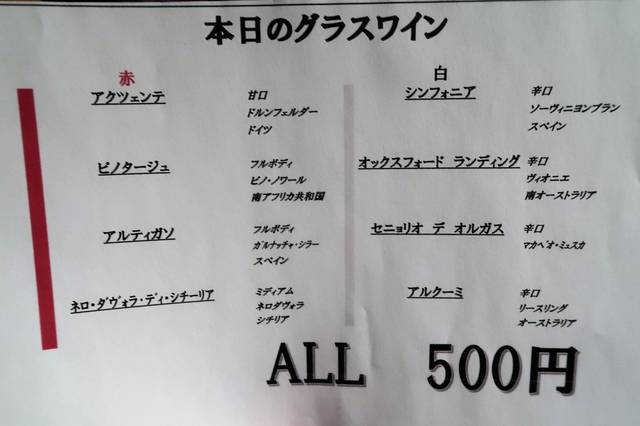 本日のグラスワイン
赤
アクツェンテ
甘口
ドルンフェルダー
ドイツ
ピノタージュ
フルボディ
ピノ・ノワール
南アフリカ共和国
アルティガソ
フルボディ
ガルナッチャ・シラー
スペイン
ネロ・ダヴォラ・ディ・シチーリア
ミディアム
ネロダヴォラ
シチリア
白
シンフォニア
辛口
ソーヴィニヨンブラン
スペイン
オックスフォード ランディング
辛口
ヴィオニエ
南オーストラリア
セニョリオ デ オルガス
辛口
マカベオ・ミュスカ
アルクーミ
辛口
リースリング
オーストラリア
ALL 500円